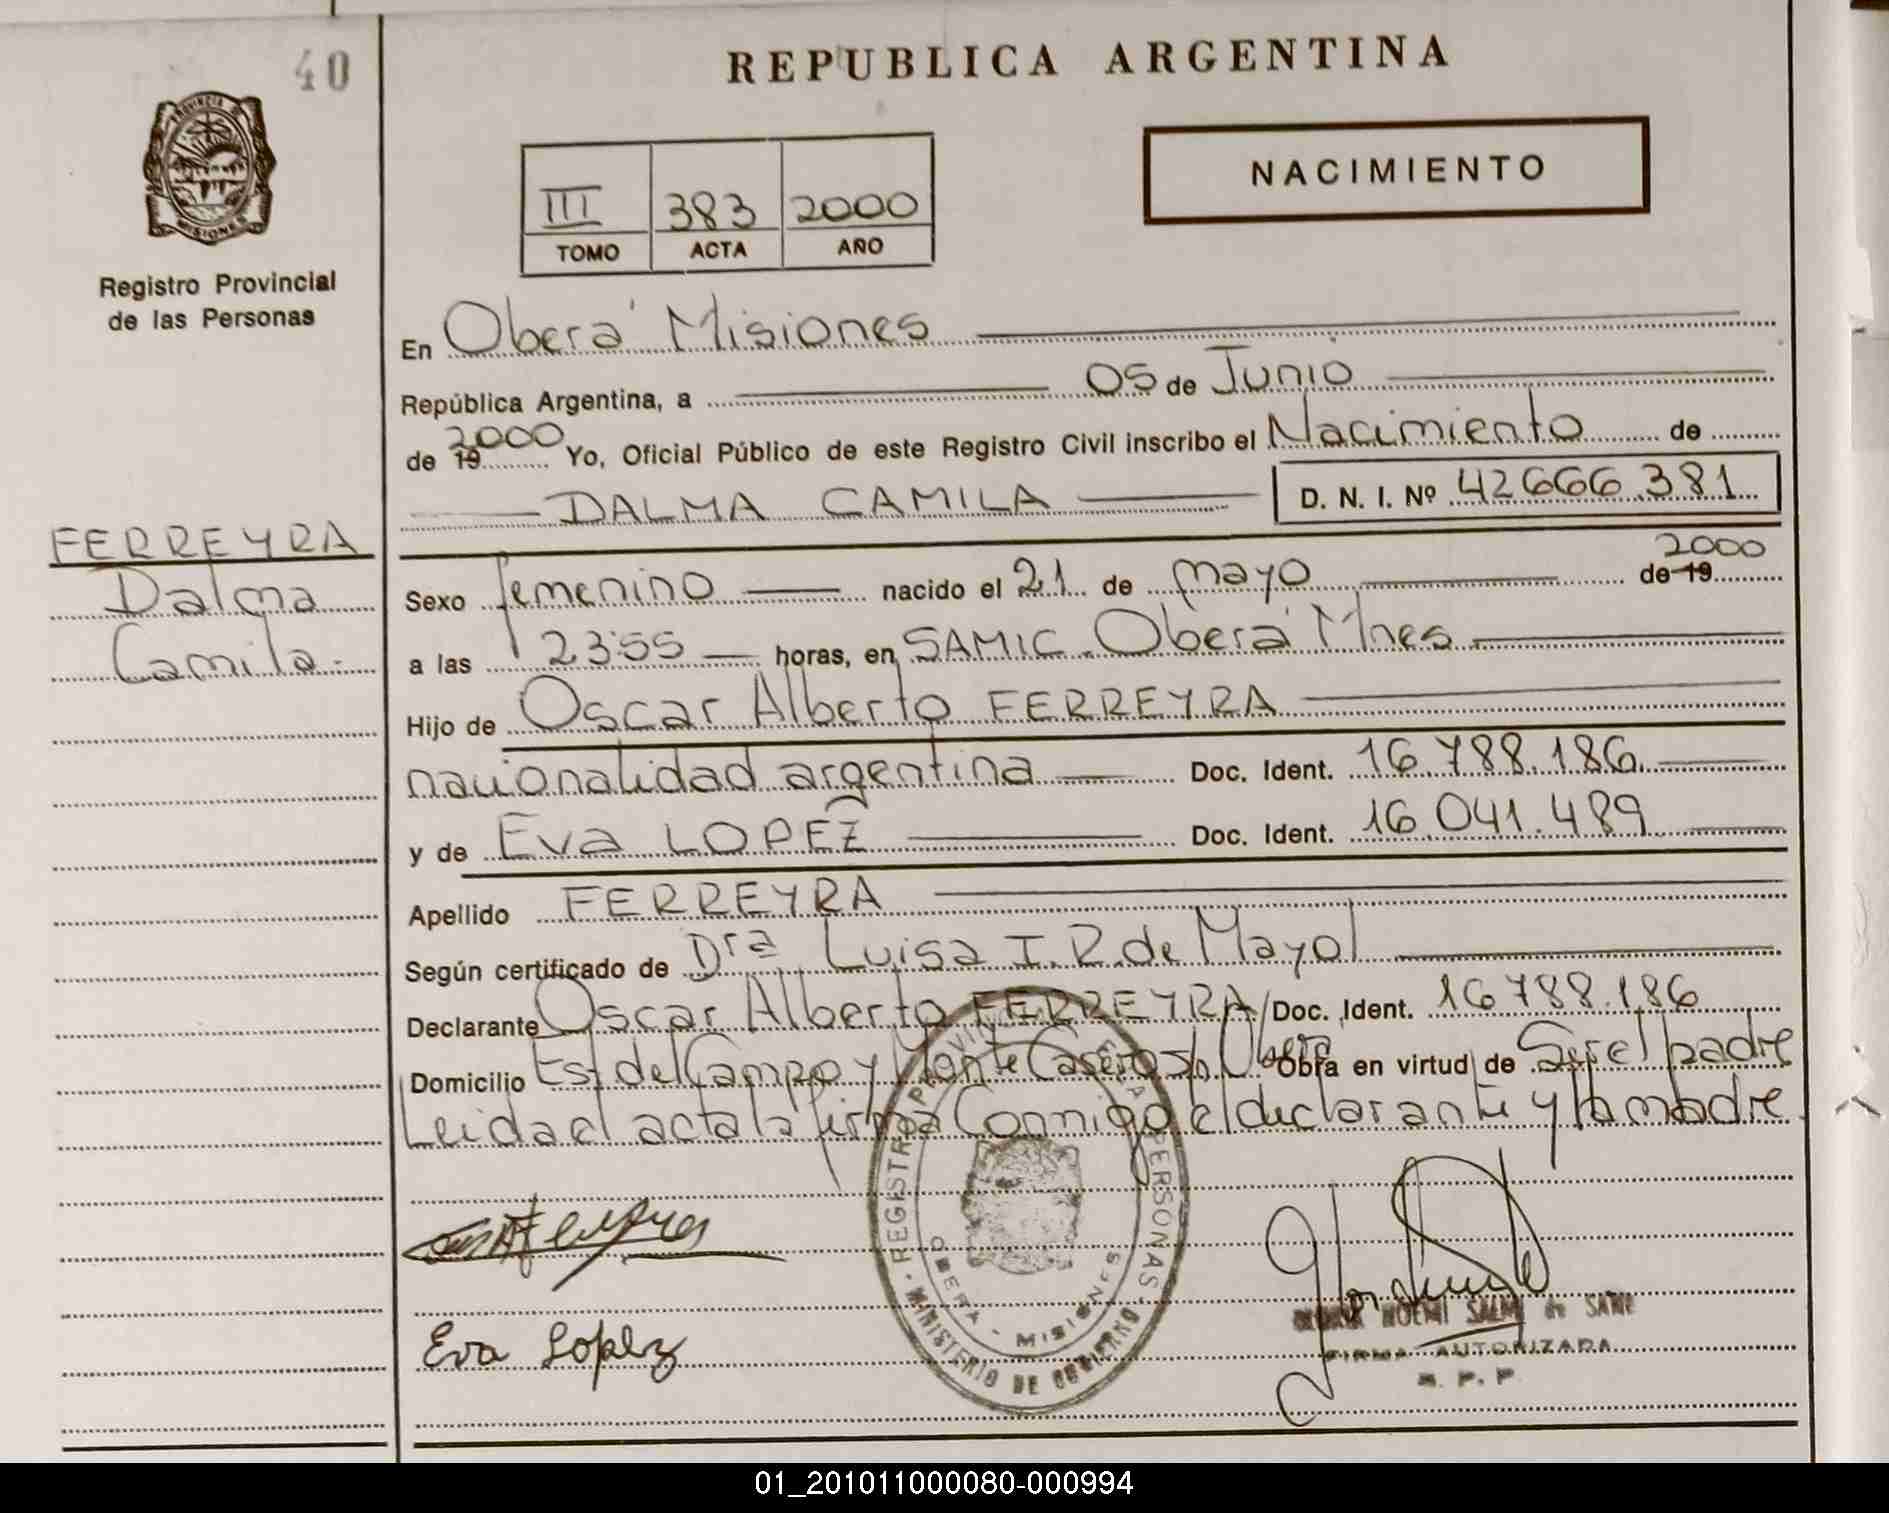 40
REPUBLICA ARGENTINA
PROVINCIA DE
MISIONES
Registro Provincial
de las Personas
NACIMIENTO
III 383 2000
TOMO ACTA AÑO
En Oberá Misiones
República Argentina, a 05 de Junio
de 19 2000 Yo, Oficial Público de este Registro Civil inscribo el Nacimiento de
DALMA CAMILA D. N. I. Nº 42666.381
FERREYRA
Dalma
Camila.-
Sexo femenino nacido el 21 de mayo de 19 2000
a las 23:55 horas, en SAMIC. Oberá Mnes
Hijo de Oscar Alberto FERREYRA
nacionalidad argentina Doc. Ident. 16.788.186.
y de Eva LOPEZ Doc. Ident. 16.041.489
Apellido FERREYRA
Según certificado de Dra Luisa I. R. de Mayol
Declarante Oscar Alberto FERREYRA Doc. Ident. 16788.186
Domicilio Est del Campo y Monte Caseros Oberá Obra en virtud de Ser el padre
Leida el acta la firma Conmigo el declarante y la madre.
REGISTRO PERSONAS
OBERA - MISIONES
MINISTERIO DE GOBIERNO
Eva Lopez
NOEMI de SANE
FIRMA AUTORIZADA
R. P. P.
01_201011000080-000994